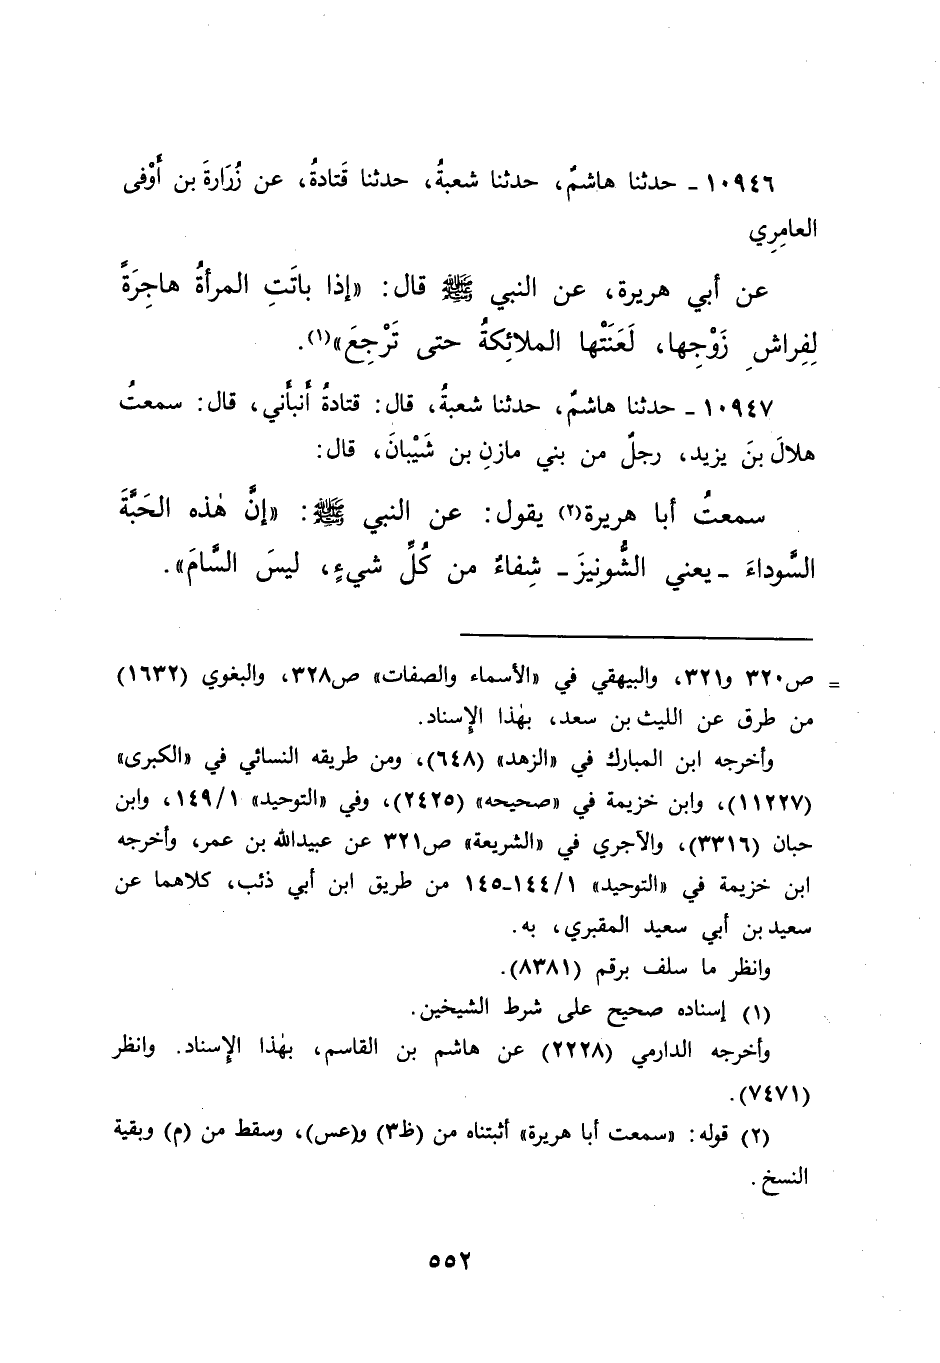 ١٠٩٤٦ - حدثنا هاشمٌ، حدثنا شعبةُ، حدثنا قَتادةُ، عن زُرَارةَ بن أَوْفى
العامِرِي
عن أبي هريرة، عن النبي ﷺ قال: «إذا باتَتِ المرأةُ هاجِرَةً
لِفِراشِ زَوْجِها، لَعَنَتْها الملائِكةُ حتى تَرْجِعَ»(١).
١٠٩٤٧ - حدثنا هاشمٌ، حدثنا شعبةُ، قال: قتادةُ أَنبأَني، قال: سمعتُ
هلالَ بنَ يزيد، رجلٌ من بني مازنِ بن شَيْبانَ، قال:
سمعتُ أبا هريرة(٢) يقول: عن النبي ﷺ: «إنَّ هٰذه الحَبَّةَ
السَّوداءَ - يعني الشُّونِيزَ - شِفاءٌ من كُلِّ شيءٍ، ليسَ السَّامَ».
= ص٣٢٠ و٣٢١، والبيهقي في «الأسماء والصفات» ص٣٢٨، والبغوي (١٦٣٢)
من طرق عن الليث بن سعد، بهٰذا الإسناد.
وأخرجه ابن المبارك في «الزهد» (٦٤٨)، ومن طريقه النسائي في «الكبرى»
(١١٢٢٧)، وابن خزيمة في «صحيحه» (٢٤٢٥)، وفي «التوحيد» ١٤٩/١، وابن
حبان (٣٣١٦)، والآجري في «الشريعة» ص٣٢١ عن عبيدالله بن عمر، وأخرجه
ابن خزيمة في «التوحيد» ١٤٤/١-١٤٥ من طريق ابن أبي ذئب، كلاهما عن
سعيد بن أبي سعيد المقبري، به.
وانظر ما سلف برقم (٨٣٨١).
(١) إسناده صحيح على شرط الشيخين.
وأخرجه الدارمي (٢٢٢٨) عن هاشم بن القاسم، بهٰذا الإسناد. وانظر
(٧٤٧١).
(٢) قوله: «سمعت أبا هريرة» أثبتناه من (ظ٣) و(عس)، وسقط من (م) وبقية
النسخ.
٥٥٢